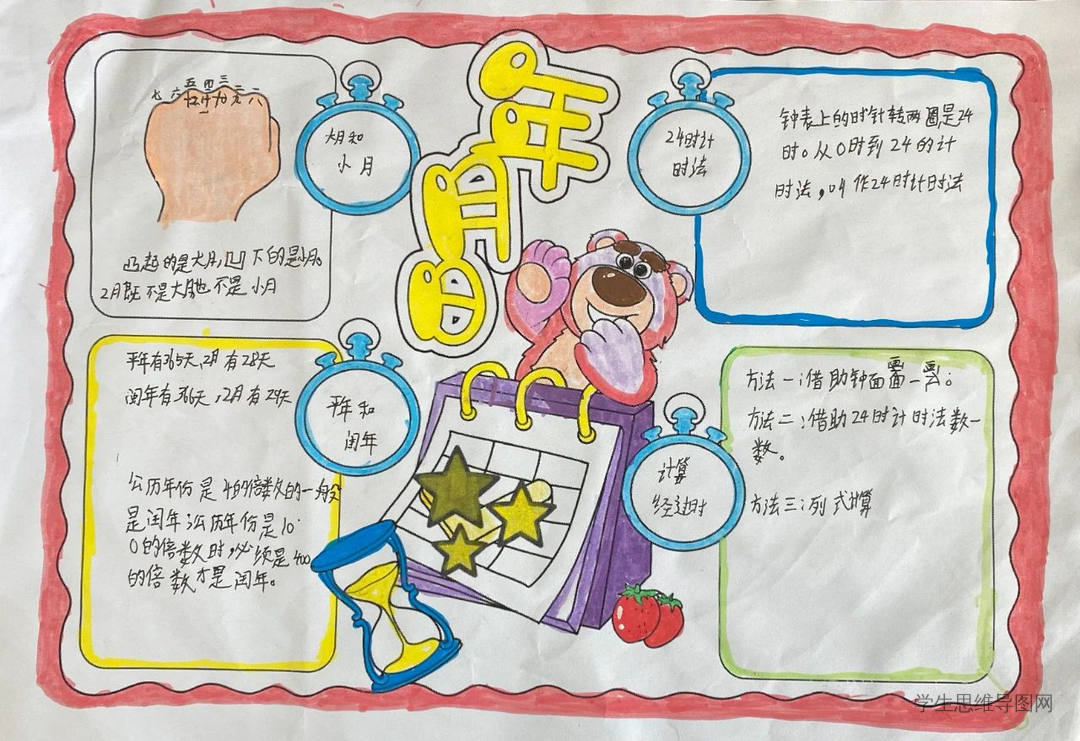 年
月
日
大月和
小月
凸起的是大月,凹下的是小月。
2月既不是大月也不是小月
24时计
时法
钟表上的时针转两圈是24
时。从0时到24的计
时法,叫作24时计时法
平年和
闰年
平年有365天,2月有28天
闰年有366天,2月有29天
公历年份是4的倍数的一般
是闰年;公历年份是10
0的倍数时,必须是400
的倍数才是闰年。
计算
经过时
方法一:借助钟面画一画;
方法二:借助24时计时法数一
数。
方法三:列式计算
学生思维导图网